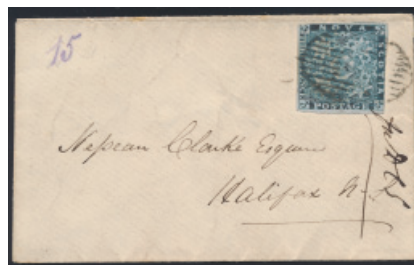 15
NOVA
SCOTIA
POSTAGE
Nepean Clarke Esquire
Halifax N.S.